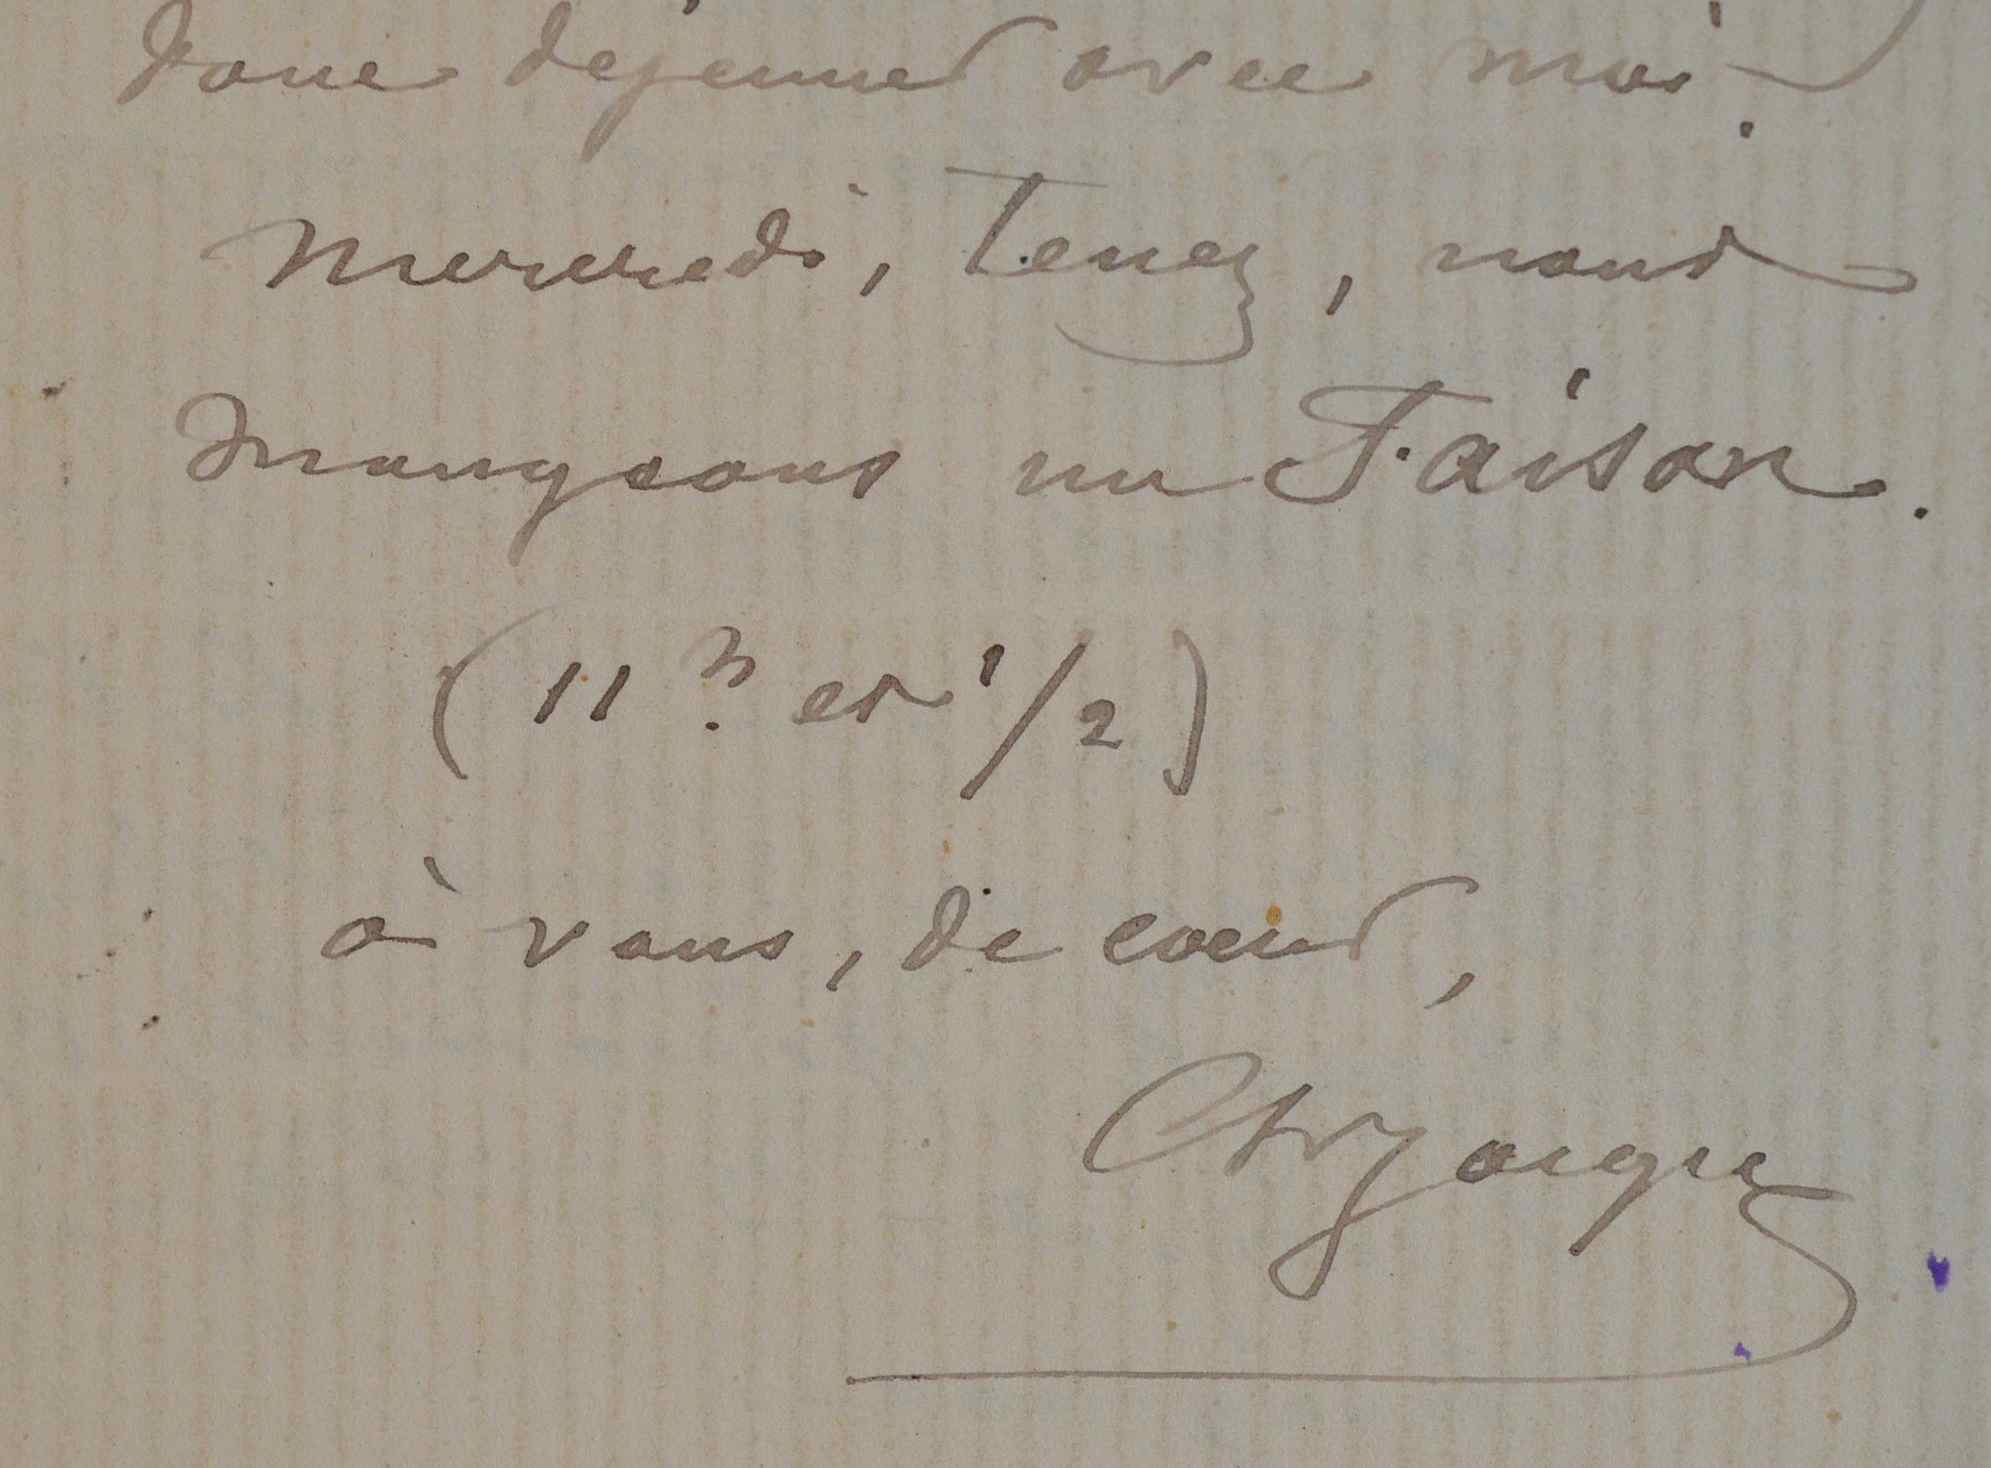 donc dejeuner avec moi.
mercredi, Tenez, nous
mangeons un Faisan.
(11 h. et 1/2)
à vous, de cœur,